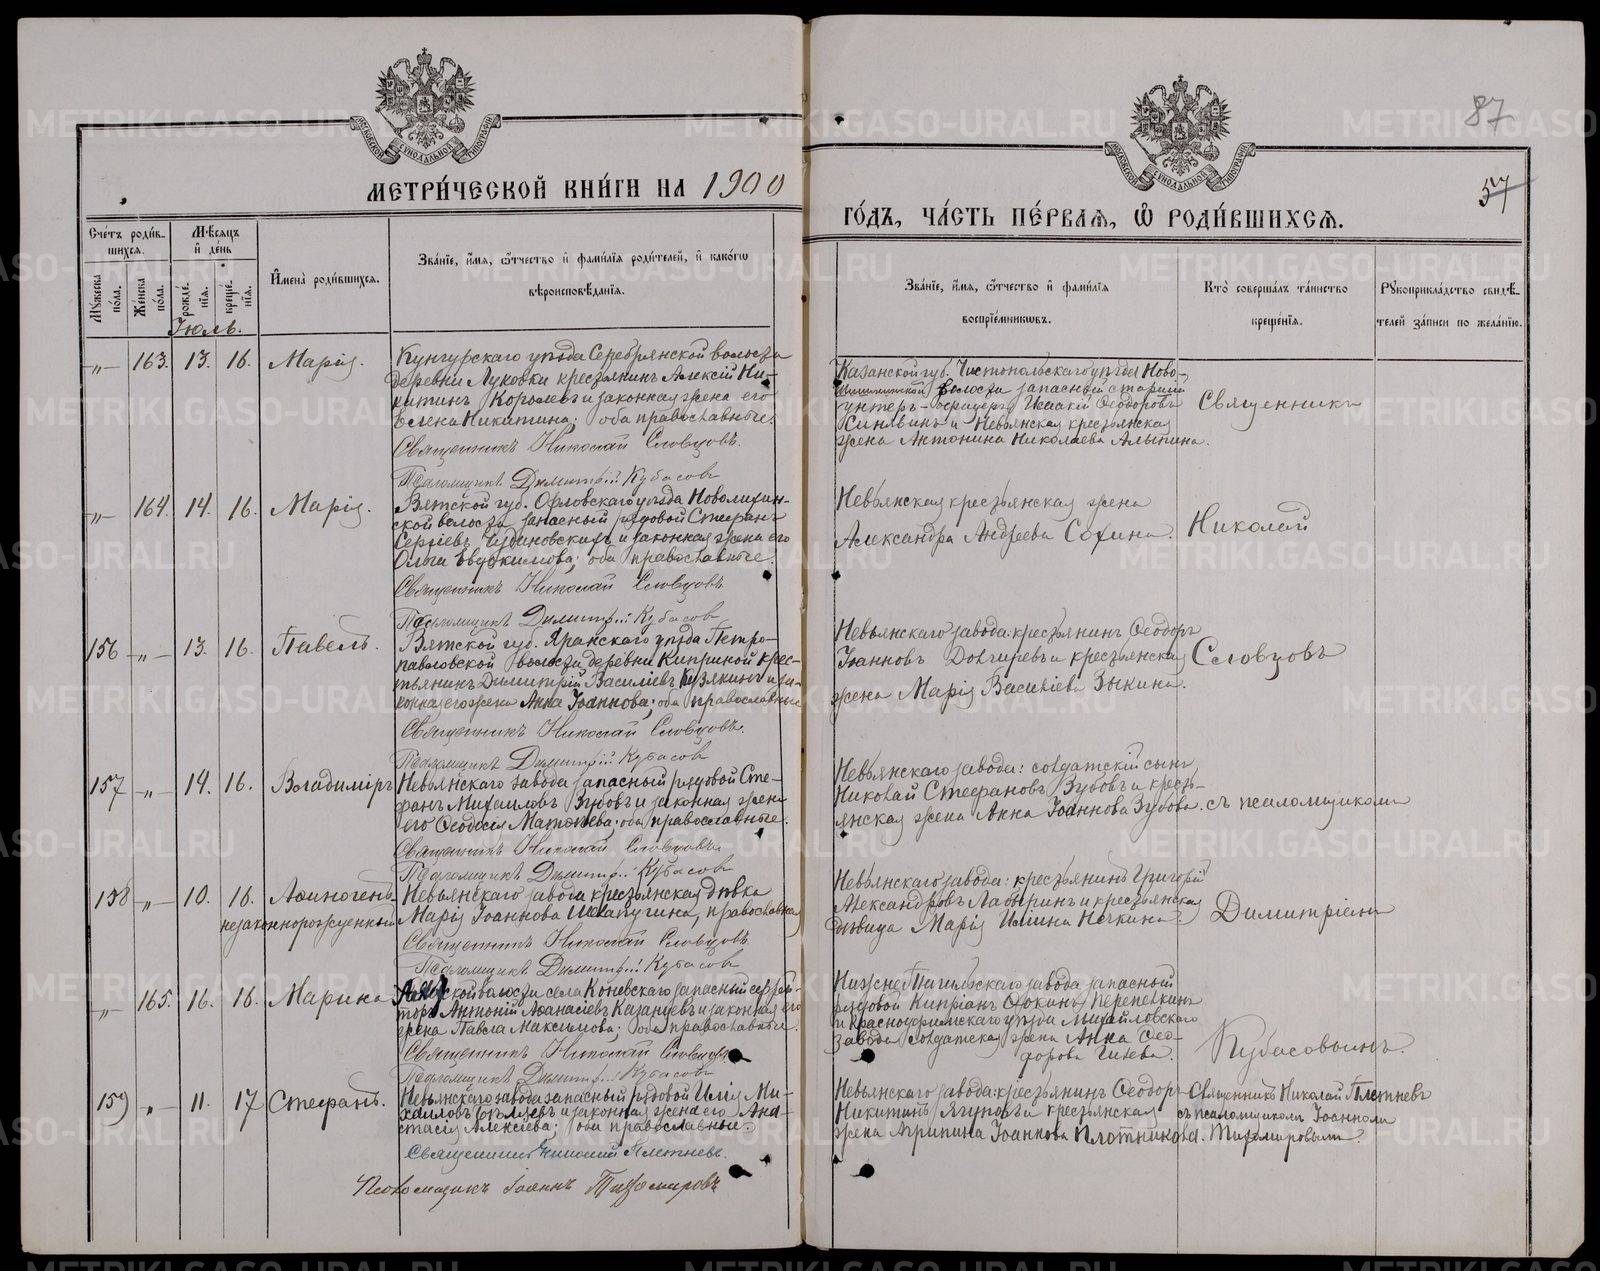 87
57
МЕТРИ́ЧЕСКОЙ КНИ́ГИ НА 1900
ГО́ДЪ, ЧА́СТЬ ПЕ́РВАЯ, Ѡ҆ РОДИ́ВШИХСЯ.
Сче́тъ роди́в-
шихся.
Мѣ́сяцъ
и҆ де́нь
Мꙋ́жеска
по́ла.
Же́нска
по́ла.
рожде́-
нїя.
креще́-
нїя.
И҆мена̀ роди́вшихся.
Зва́нїе, и҆́мя, ѻ҆́тчество и҆ фами́лїя роди́телей, и҆ како́гѡ
вѣроисповѣ́данїя.
Зва́нїе, и҆́мя, ѻ҆́тчество и҆ фами́лїя
воспрїе́мникѡвъ.
Кто̀ соверша́лъ та́инство
креще́нїя.
Рꙋкоприкла́дство свидѣ́-
телей за́писи по жела́нїю.
Іюль.
"— 163. 13. 16. Марія.
Кунгурскаго уѣзда Серебрянской волости
деревни Луковки крестьянинъ Алексій Ни-
китинъ Королевъ и законная жена его
Елена Никитина; оба православные.
Священникъ Николай Словцовъ.
Псаломщикъ Димитрій Кубасовъ
Казанской губ. Чистопольскаго уѣзда Ново-
волости запасный старшій
унтеръ-офицеръ Исаакій Ѳеодоровъ
Синявинъ и Невьянская крестьянская
жена Антонина Николаева Алыпина.
Священникъ
"— 164. 14. 16. Марія.
Вятской губ. Орловскаго уѣзда
ской волости запасный рядовой Стефанъ
Сергіевъ и законная жена его
Ольга Евдокимова; оба православные.
Священникъ Николай Словцовъ
Псаломщикъ Димитрій Кубасовъ
Невьянская крестьянская жена
Александра Андреева Сохина.
Николай
156 —"— 13. 16. Павелъ.
Вятской губ. Яранскаго уѣзда Петро-
павловской волости деревни Киприной крес-
тьянинъ Димитрій Василіевъ Кузякинъ и за-
конная его жена Анна Іоаннова; оба православные
Священникъ Николай Словцовъ.
Псаломщикъ Димитрій Кубасовъ
Невьянскаго завода: крестьянинъ Ѳеодоръ
Іоанновъ и крестьянская
жена Марія Василіева Зыкина.
Словцовъ
157 —"— 14. 16. Владиміръ
Невьянскаго завода запасный рядовой Сте-
фанъ Михаиловъ Зубовъ и законная жена
его Ѳеодосія Матѳеева; оба православные.
Священникъ Николай Словцовъ
Псаломщикъ Димитрій Кубасовъ
Невьянскаго завода: солдатскій сынъ
Николай Стефановъ Зубовъ и кресть-
янская жена Анна Іоаннова Зубова.
съ псаломщикомъ
158 —"— 10. 16. Аѳиногенъ
незаконнорожденный
Невьянскаго завода крестьянская дѣвка
Марія Іоаннова Шапугина, православная
Священникъ Николай Словцовъ
Псаломщикъ Димитрій Кубасовъ
Невьянскаго завода: крестьянинъ Григорій
Александровъ и крестьянская
дѣвица Марія Иліина Нечкина
Димитріемъ
"— 165. 16. 16. Марина
волости села Коневскаго запасный
Антоній Аѳанасіевъ Казанцевъ и законная его
жена Павла Максимова; оба православные.
Священникъ Николай Словцовъ
Псаломщикъ Димитрій Кубасовъ
Нижне-Тагильскаго завода запасный
рядовой Кипріанъ Фокинъ Перепелкинъ
и Красноуфимскаго уѣзда Михайловскаго
завода солдатская жена Анна Ѳео-
дорова
Кубасовымъ.
159 "— 11. 17 Стефанъ.
Невьянскаго завода запасный рядовой Илія Ми-
хаиловъ и законная жена его Ана-
стасія Алексіева; оба православные.
Священникъ Николай Плетневъ.
Псаломщикъ Іоаннъ Тихомировъ
Невьянскаго завода: крестьянинъ Ѳеодоръ
Никитинъ Ягуновъ и крестьянская
жена Агрипина Іоаннова Плотникова.
Священникъ Николай Плетневъ
съ псаломщикомъ Іоанномъ
Тихомировымъ.